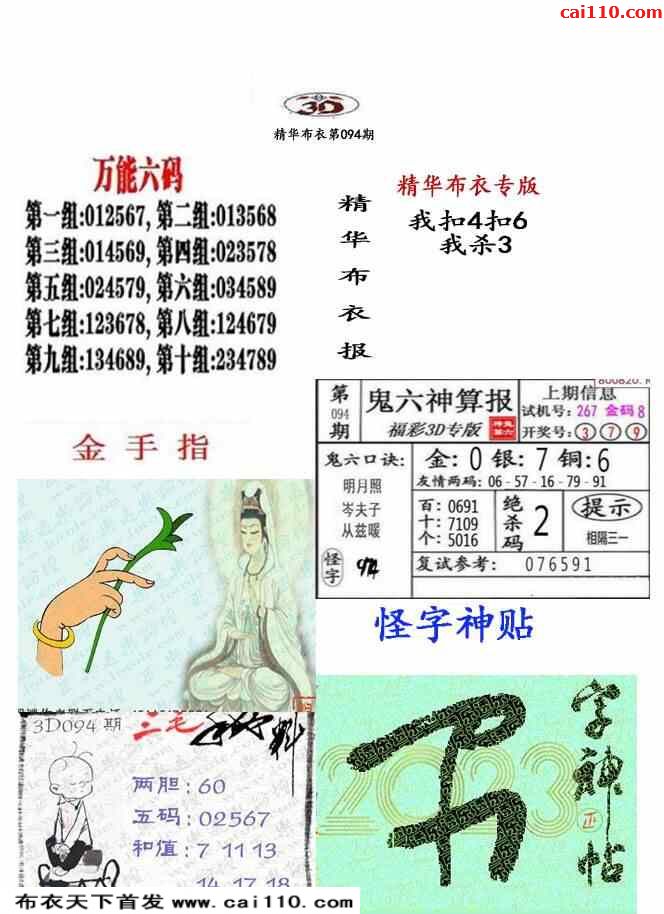 cai110.com
3D
精华布衣第094期
万能六码
第一组:012567, 第二组:013568
第三组:014569, 第四组:023578
第五组:024579, 第六组:034589
第七组:123678, 第八组:124679
第九组:134689, 第十组:234789
精华布衣报
精华布衣专版
我扣4扣6
我杀3
金手指
第094期
鬼六神算报
福彩3D专版
上期信息
试机号: 267 金码 8
开奖号: 3 7 9
鬼六口诀:
明月照
岑夫子
从兹暖
怪字
金: 0 银: 7 铜: 6
友情两码: 06-57-16-79-91
百: 0691
十: 7109
个: 5016
绝杀码 2
提示
相隔三一
复试参考: 076591
怪字神贴
3D094 期
三毛
料
两胆: 60
五码: 02567
和值: 7 11 13
14 17 18
2023
字神帖
正
布衣天下首发 www.cai110.com